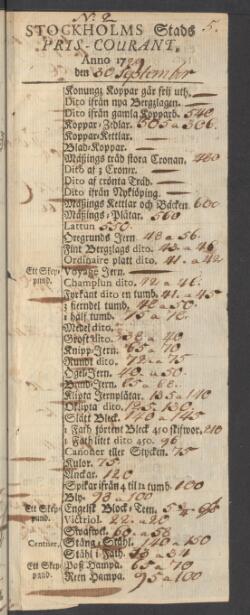 N: 2
STOCKHOLMS Stads 5.
PRIS-COURANT,
Anno 17
den 30 September
Konungz Koppar går fritt uth.
Dito ifrån nya Bergzlagen.
Dito ifrån gamla Kopparb. 540
Koppar-Zedlar. 305 a 306.
Koppar-Kettlar.
Blad-Koppar.
Mäßings tråd flora Cronan, 480
Dito af 3 Croner.
Dito af trönta Tråd.
Dito ifrån Nyköping.
Mäßings Kettlar och Bäcken 600
Mäßings-Plåtar. 560
Lattun 550.
Öregrunds Jern 48 a 56.
Fint Bergzlags dito. 43 a 46
Ordinaire platt dito. 41. a 42
Ett Skep- Voyage Jern.
pund. Champlun dito. 42 a 46.
Fyrkant dito en tumb. 41. a 45
3 fierndel tumb. 48 a 50
1 half tumb. 75 a 78.
Medel dito.
Groft dito. 38 a 40
Knipp-Jern. 65. 70
Rundt dito. 72 a 75
Ögel-Jern. 48. a 50.
Band-Jern. 65 a 68.
Klipte Jernplåtar. 135 a 140
Oklipta dito. 125. 130.
Slätt Bleck. 140. 145
1 Fath förtent Bleck 450 skifwor. 210
1 Fath litet dito 450. 96
Canoner eller Stycken. 75
Kulor. 75
Klockar. 120
Spikar ifrån 4 til 12 tumb. 100
Bly. 93 a 100
Ett Ske- Engelst Block-Tenn.
pund. Victriol. 22. a 20
Swafwel. 60 a 58
Centner. Stång-Stål. 140 a 150
Stähl i Fath. 33 a 34
Ett Skep- Paß Hampa. 65 a 70
pund. Reen Hampa. 95 a 100